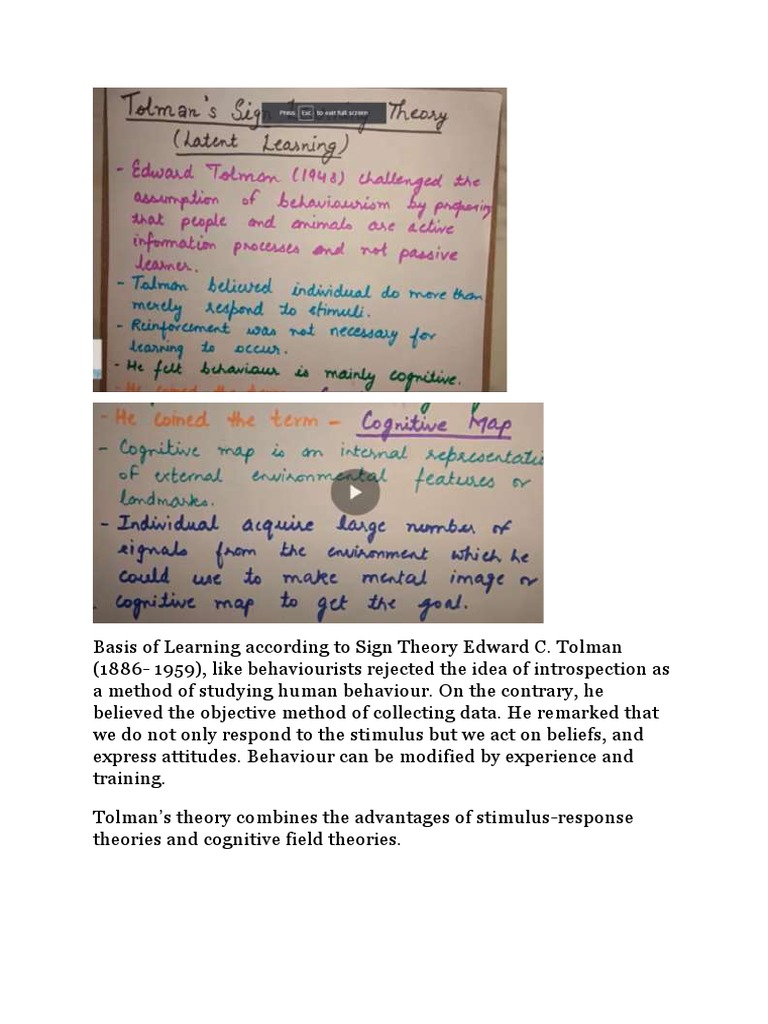 Tolman's Sign Theory
Press Esc to exit full screen
(Latent Learning)
- Edward Tolman (1948) challenged the
assumption of behaviourism by proposing
that people and animals are active
information processes and not passive
learner.
- Tolman believed individual do more than
merely respond to stimuli.
- Reinforcement was not necessary for
learning to occur.
- He felt behaviour is mainly cognitive.
- He coined the term - Cognitive Map
- Cognitive map is an internal representati
of external environmental features or
landmarks.
- Individual acquire large number of
signals from the environment which he
could use to make mental image or
cognitive map to get the goal.
Basis of Learning according to Sign Theory Edward C. Tolman
(1886- 1959), like behaviourists rejected the idea of introspection as
a method of studying human behaviour. On the contrary, he
believed the objective method of collecting data. He remarked that
we do not only respond to the stimulus but we act on beliefs, and
express attitudes. Behaviour can be modified by experience and
training.
Tolman's theory combines the advantages of stimulus-response
theories and cognitive field theories.